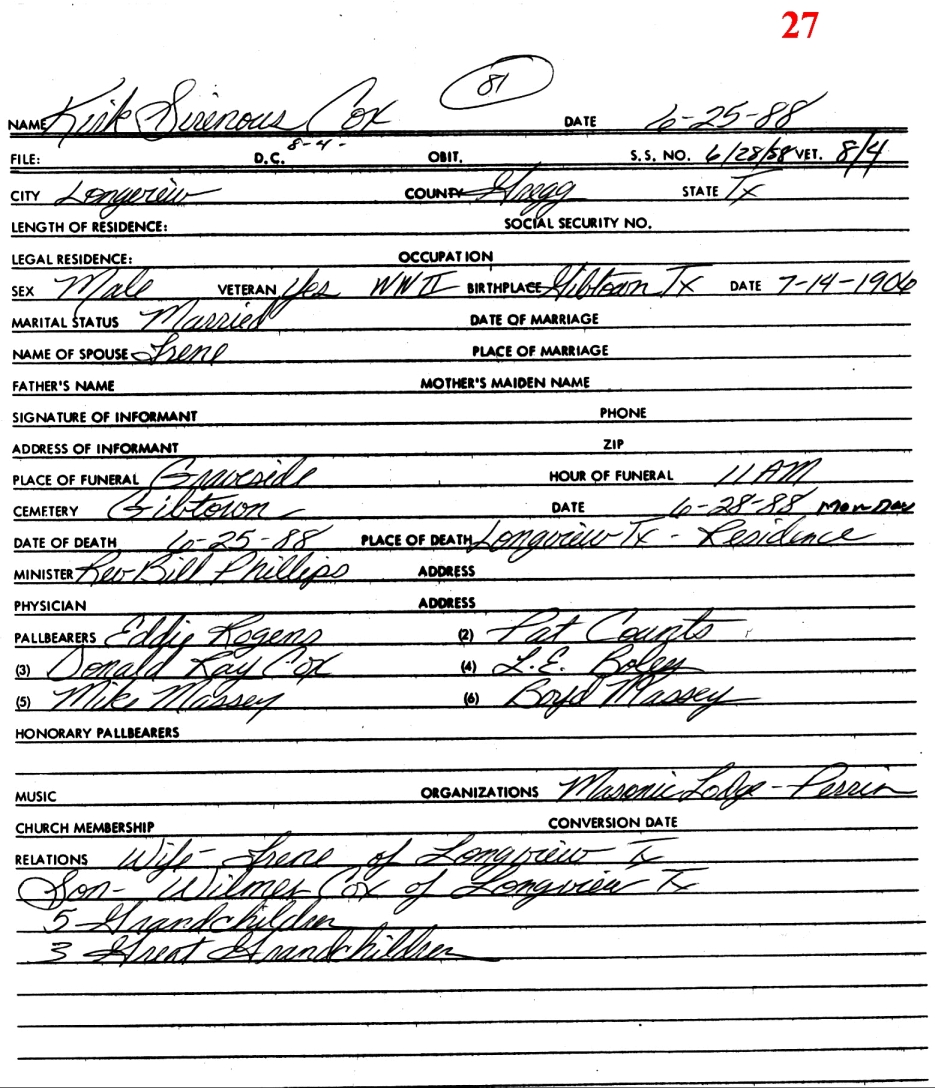 27
81
NAME Kirk Sirenous Cox DATE 6-25-88
8-4-
FILE: D.C. OBIT. S.S. NO. 6/28/88 VET. 8/4
CITY Longview COUNTY Gregg STATE Tx
LENGTH OF RESIDENCE: SOCIAL SECURITY NO.
LEGAL RESIDENCE: OCCUPATION
SEX Male VETERAN Yes WWII BIRTHPLACE Gibtown Tx DATE 7-14-1906
MARITAL STATUS Married DATE OF MARRIAGE
NAME OF SPOUSE Irene PLACE OF MARRIAGE
FATHER'S NAME MOTHER'S MAIDEN NAME
SIGNATURE OF INFORMANT PHONE
ADDRESS OF INFORMANT ZIP
PLACE OF FUNERAL Graveside HOUR OF FUNERAL 11 AM
CEMETERY Gibtown DATE 6-28-88 MONDAY
DATE OF DEATH 6-25-88 PLACE OF DEATH Longview Tx - Residence
MINISTER Rev Bill Phillips ADDRESS
PHYSICIAN ADDRESS
PALLBEARERS Eddie Rogens (2) Pat Counts
(3) Donald Ray Cox (4) L.E. Boley
(5) Mike Massey (6) Boyd Massey
HONORARY PALLBEARERS
MUSIC ORGANIZATIONS Masonic Lodge - Perrin
CHURCH MEMBERSHIP CONVERSION DATE
RELATIONS Wife - Irene of Longview Tx
Son - Wilmer Cox of Longview Tx
5 Grandchildren
3 Great Grandchildren